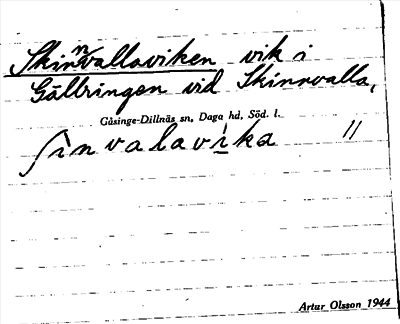 Skinnvallaviken vik i
Gällringen vid Skinnvalla,
Gåsinge-Dillnäs sn, Daga hd, Söd. l.
ʃìnvalavi̱ka //
Artur Olsson 1944